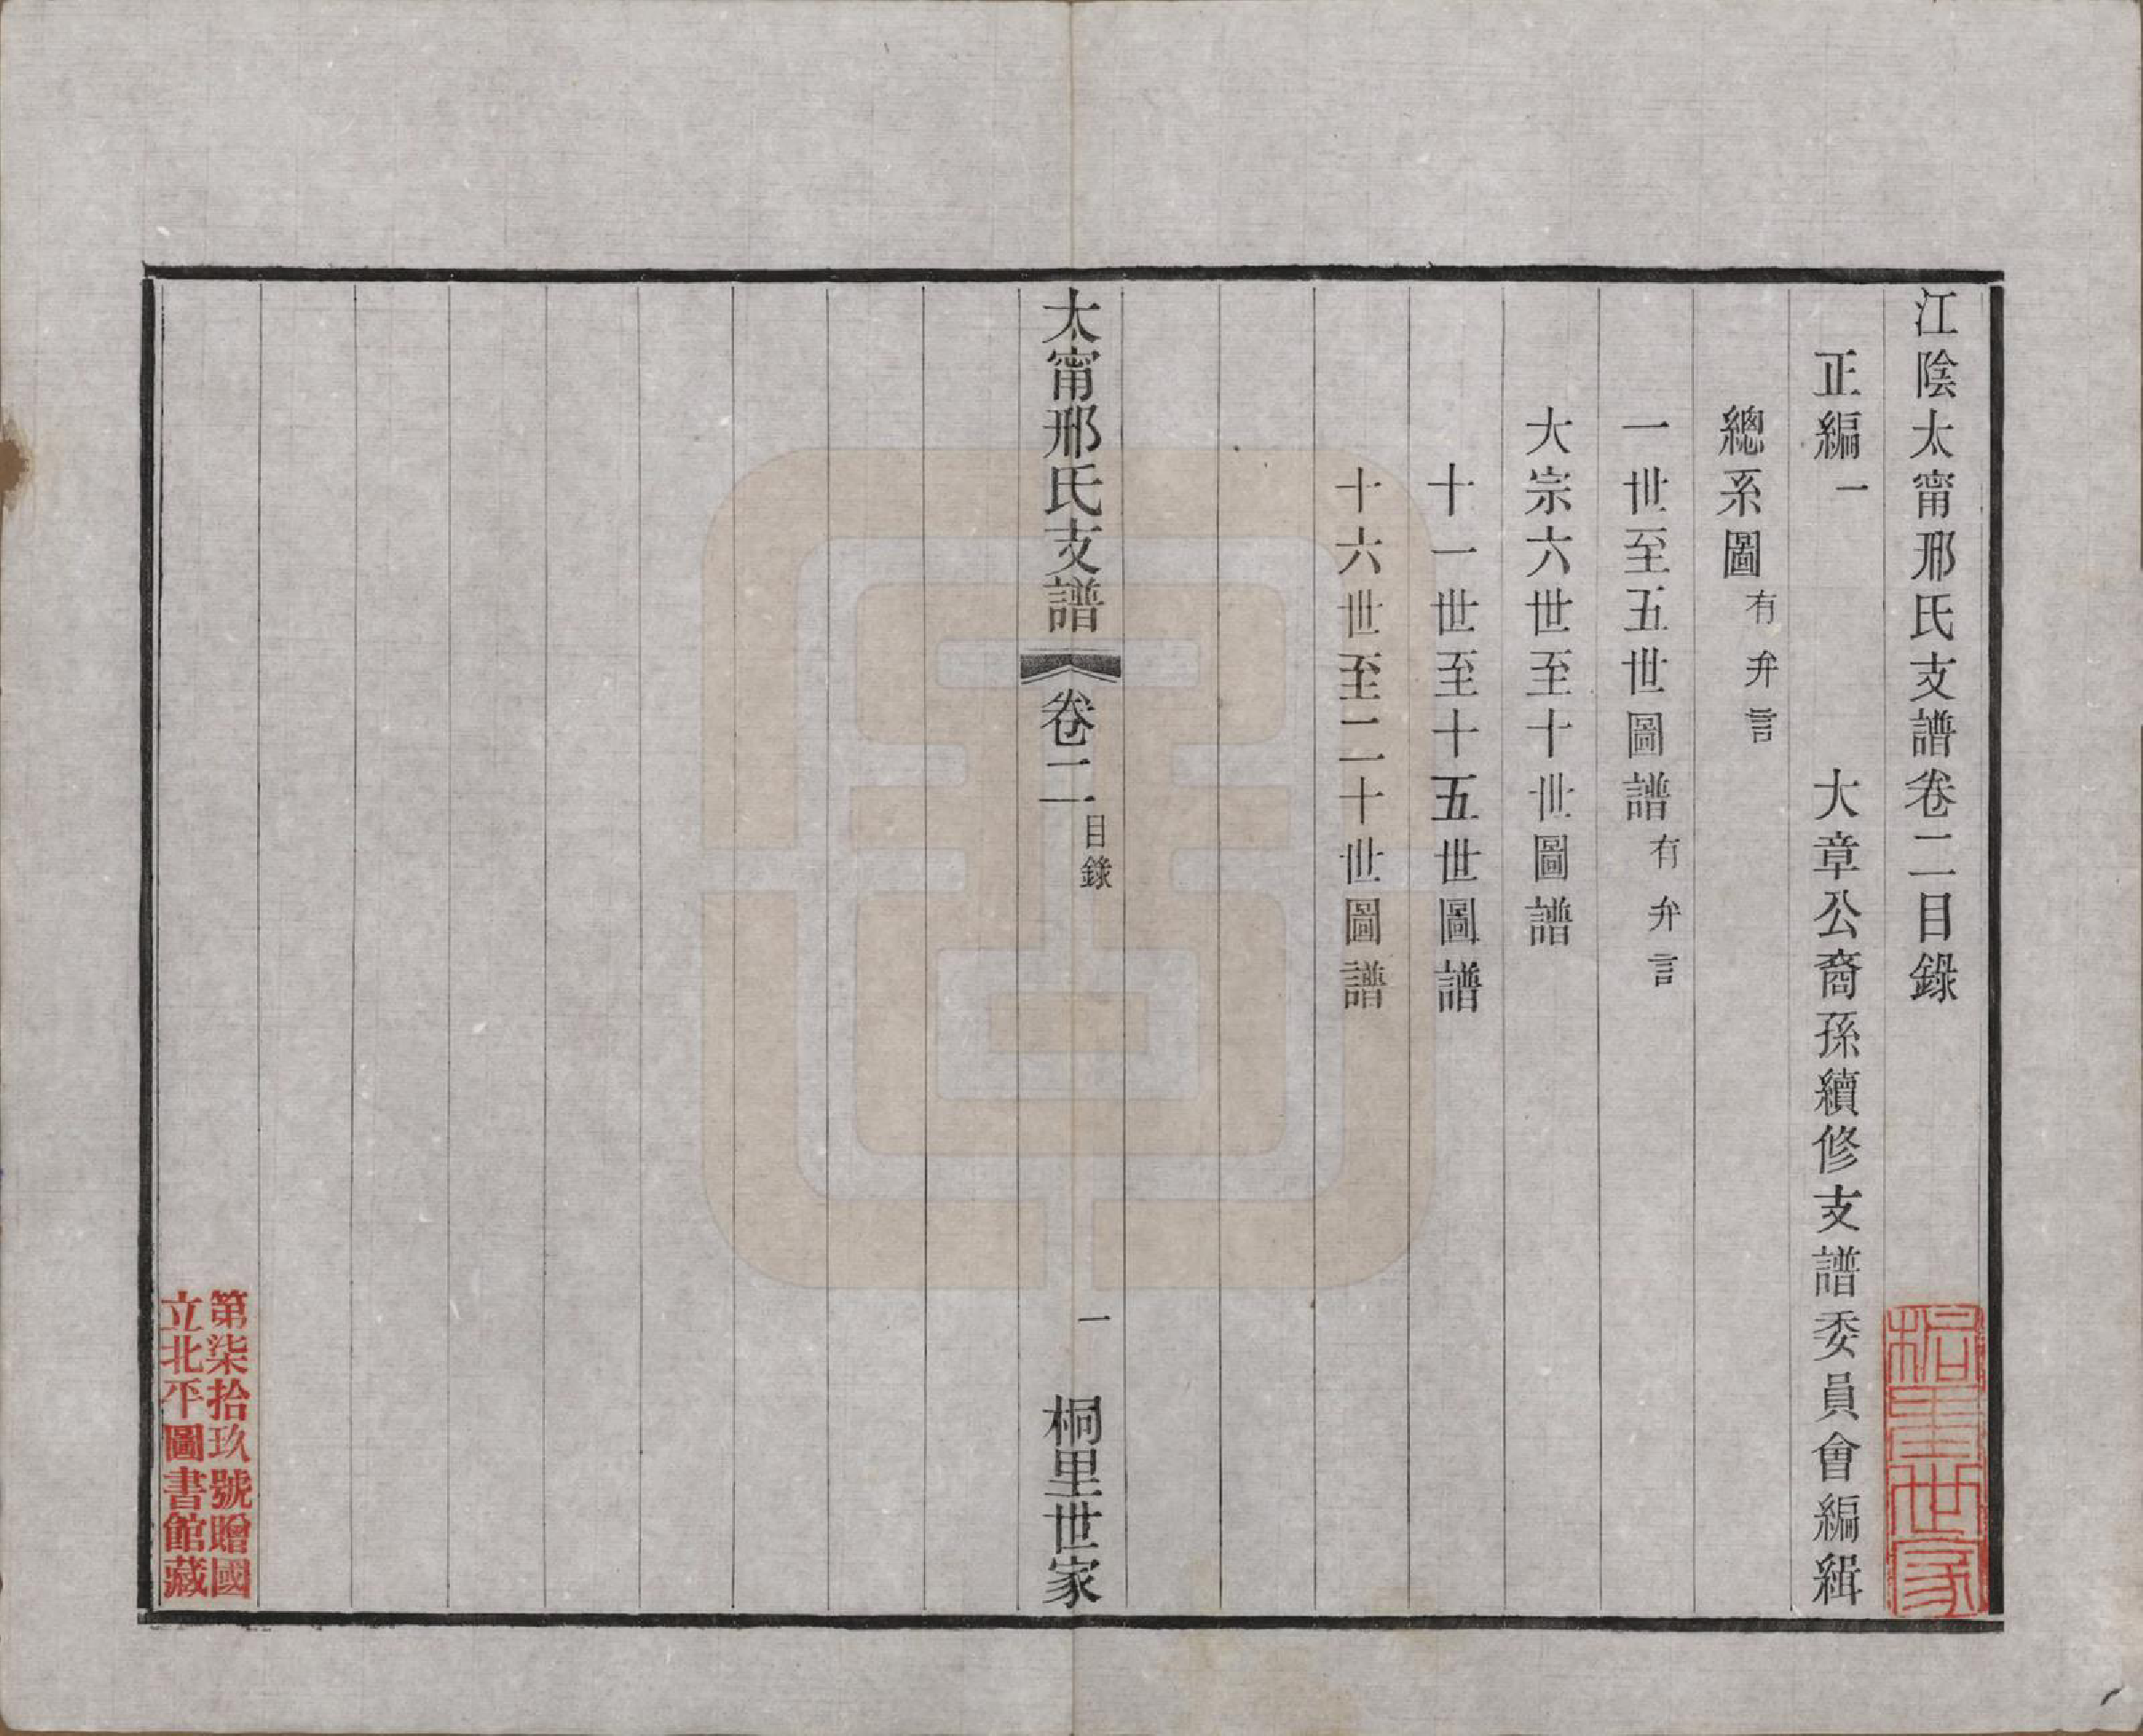 江陰太甯邢氏支譜卷二目錄
正編一　大章公裔孫續修支譜委員會編緝
總系圖有弁言
一世至五世圖譜有弁言
大宗六世至十世圖譜
十一世至十五世圖譜
十六世至二十世圖譜
桐里世家
太甯邢氏支譜　卷二目錄　一　桐里世家
第柒拾玖號贈國
立北平圖書館藏